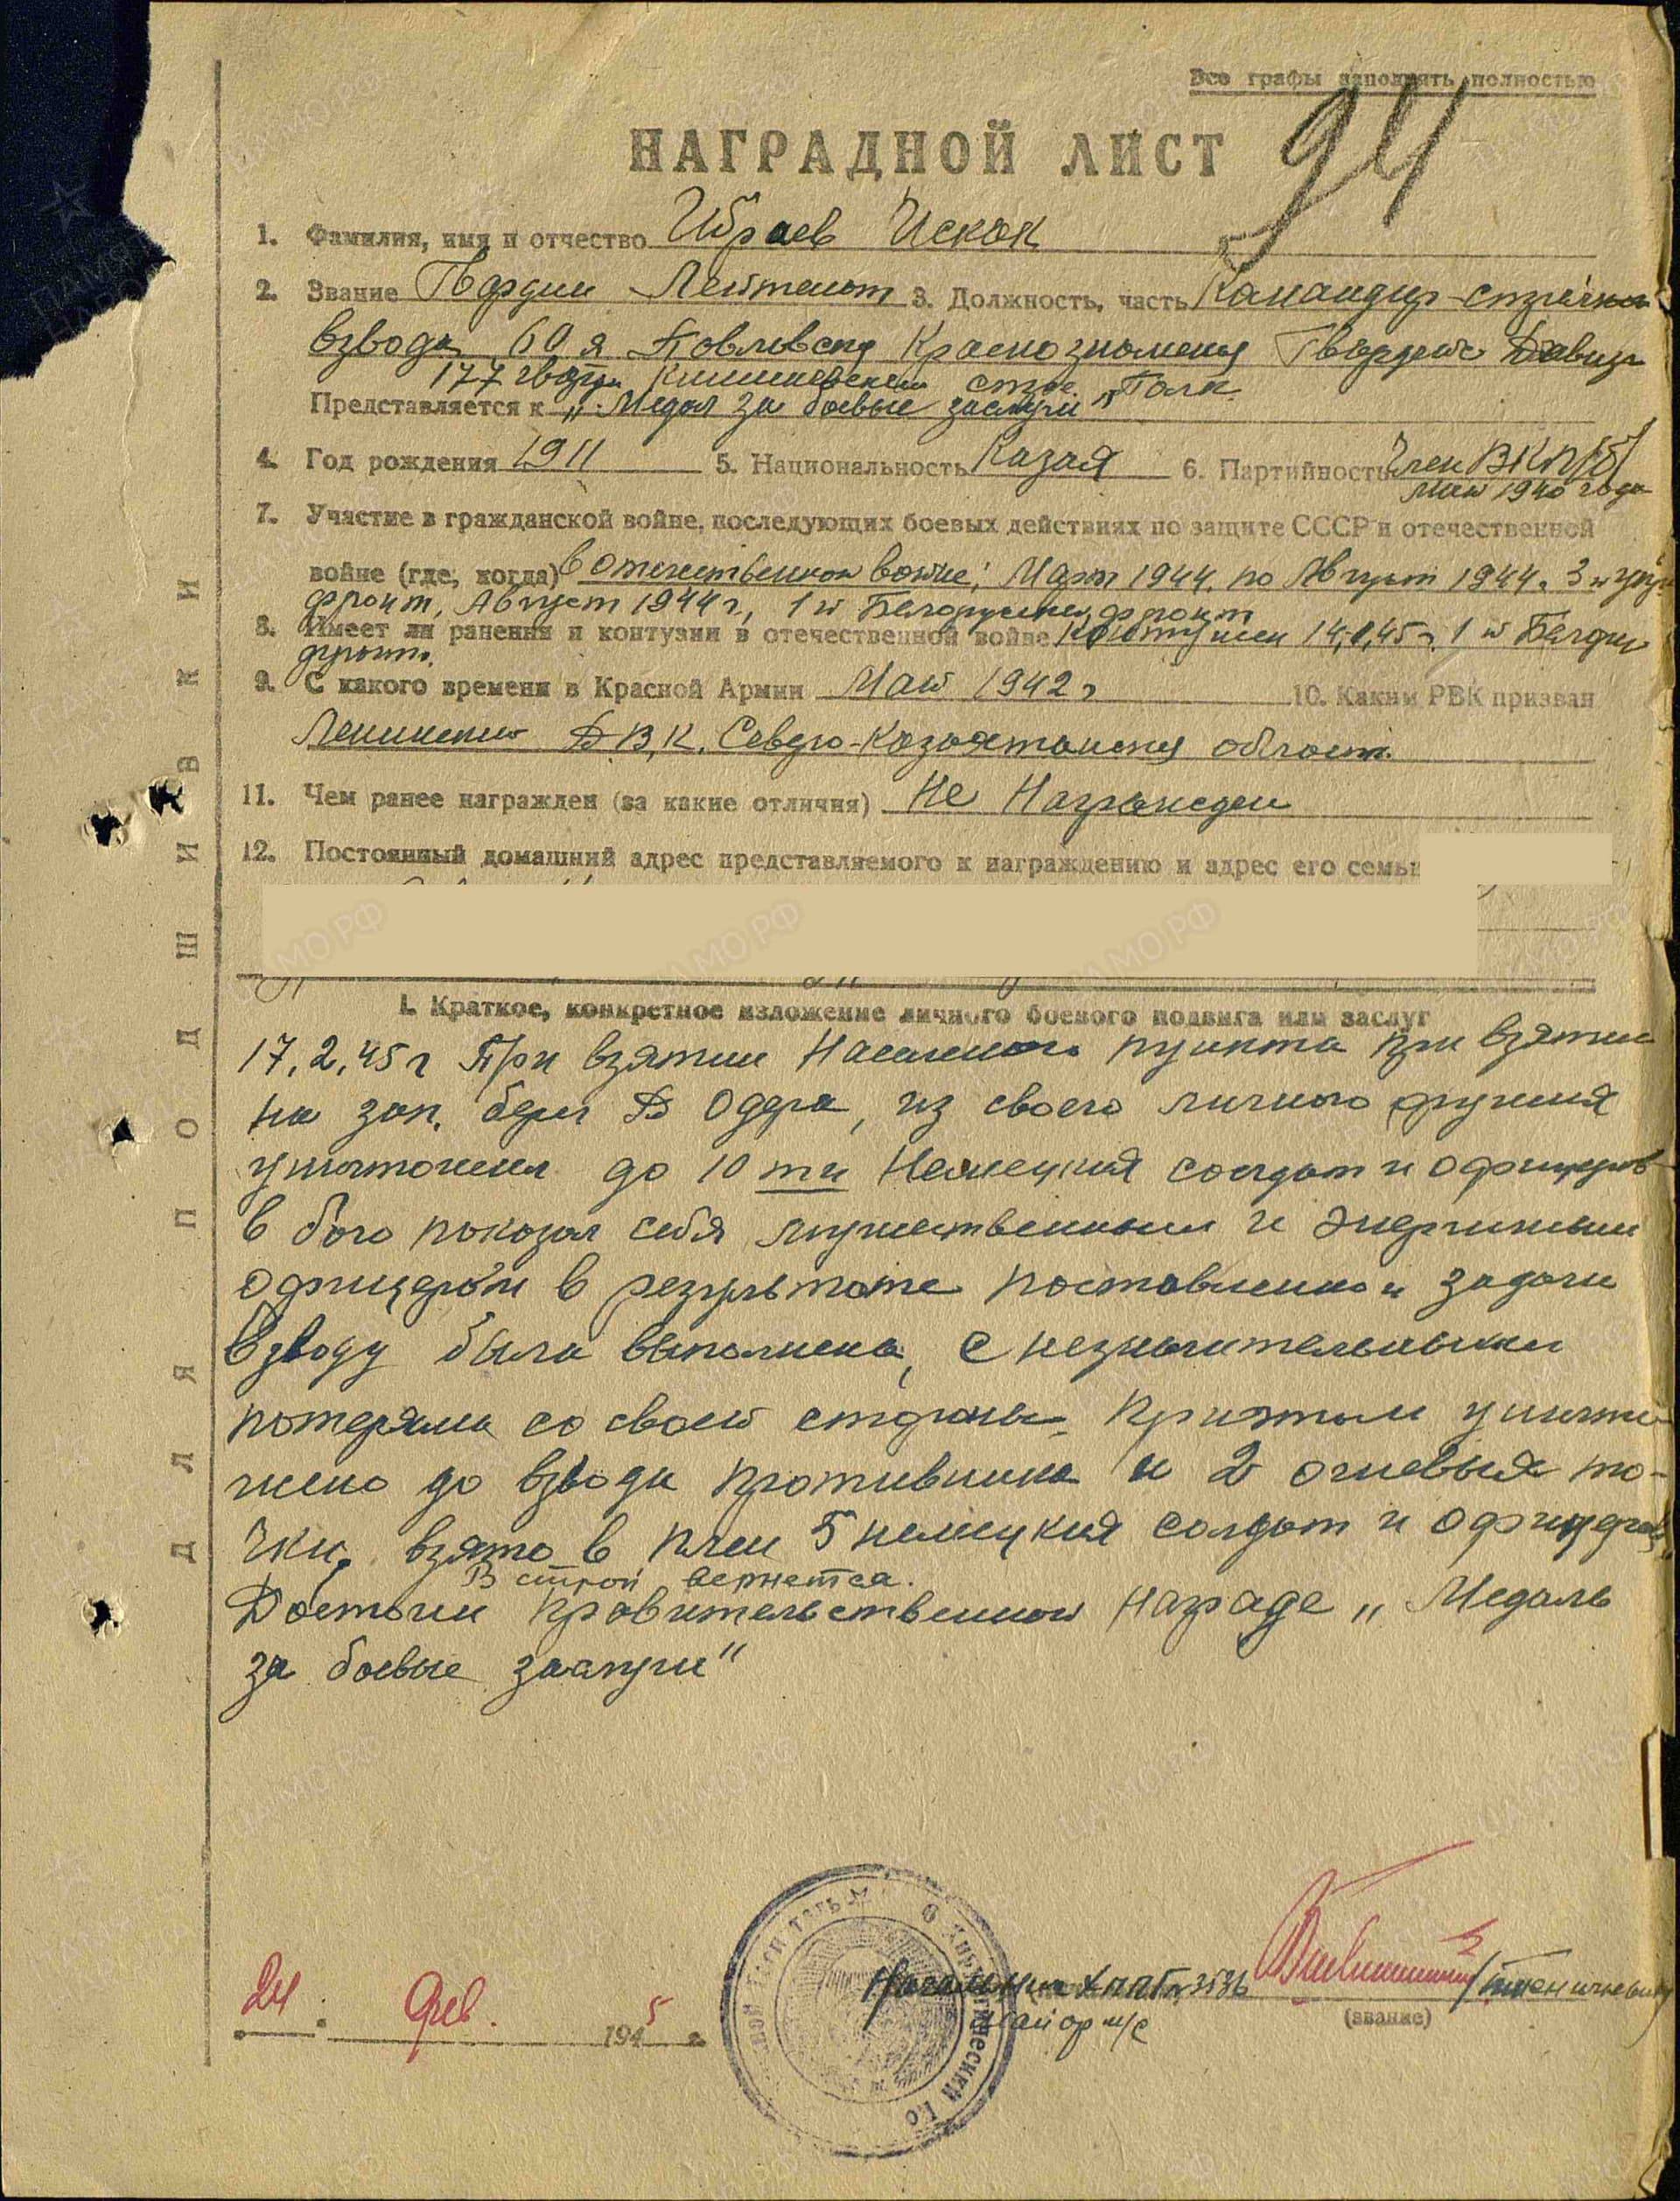 Все графы заполнять полностью
94
НАГРАДНОЙ ЛИСТ
1. Фамилия, имя и отчество Ибраев Искак
2. Звание Гвардии Лейтенант 3. Должность, часть Командир
взвода 60 я Краснознаменная
177 Кишиневский стр. Полк
Представляется к „Медал за боевые заслуги"
4. Год рождения 1911 5. Национальность Казах 6. Партийность Член ВКП/б/
Май 1940 года
7. Участие в гражданской войне, последующих боевых действиях по защите СССР и отечественной
войне (где, когда) в отечественной войне; Март 1944. по Август 1944. 3 й укр.
фронт, Август 1944 г, 1 й Белорусский фронт
8. Имеет ли ранения и контузии в отечественной войне Контужен 14.1.45 г. 1 й
фронт.
9. С какого времени в Красной Армии Май 1942 г 10. Каким РВК призван
Ленинский Северо-Казахстанская област.
11. Чем ранее награжден (за какие отличия) Не Награжден
12. Постоянный домашний адрес представляемого к награждению и адрес его семьи
I. Краткое, конкретное изложение личного боевого подвига или заслуг
17.2.45 г При взятии Населенного пункта при взятии
на зап. берег Одера, из своего личного оружия
уничтожил до 10 ти Немецких солдат и офицеров
в бою показал себя мужественным и энергичным
офицером в результате поставленной задачи
взводу была выполнена, с незначительными
потерями со своей стороны. При этом уничто-
жено до взвода противника и 2 огневых то-
чки, взято в плен 5 немецких солдат и офицеров.
В строй вернется.
Достоин правительственной награде „Медаль
за боевые заслуги"
Начальник ХППГ 3536
майор м/с
(звание)
24 фев. 1945 г.
ДЛЯ ПОДШИВКИ
ЦАМО РФ